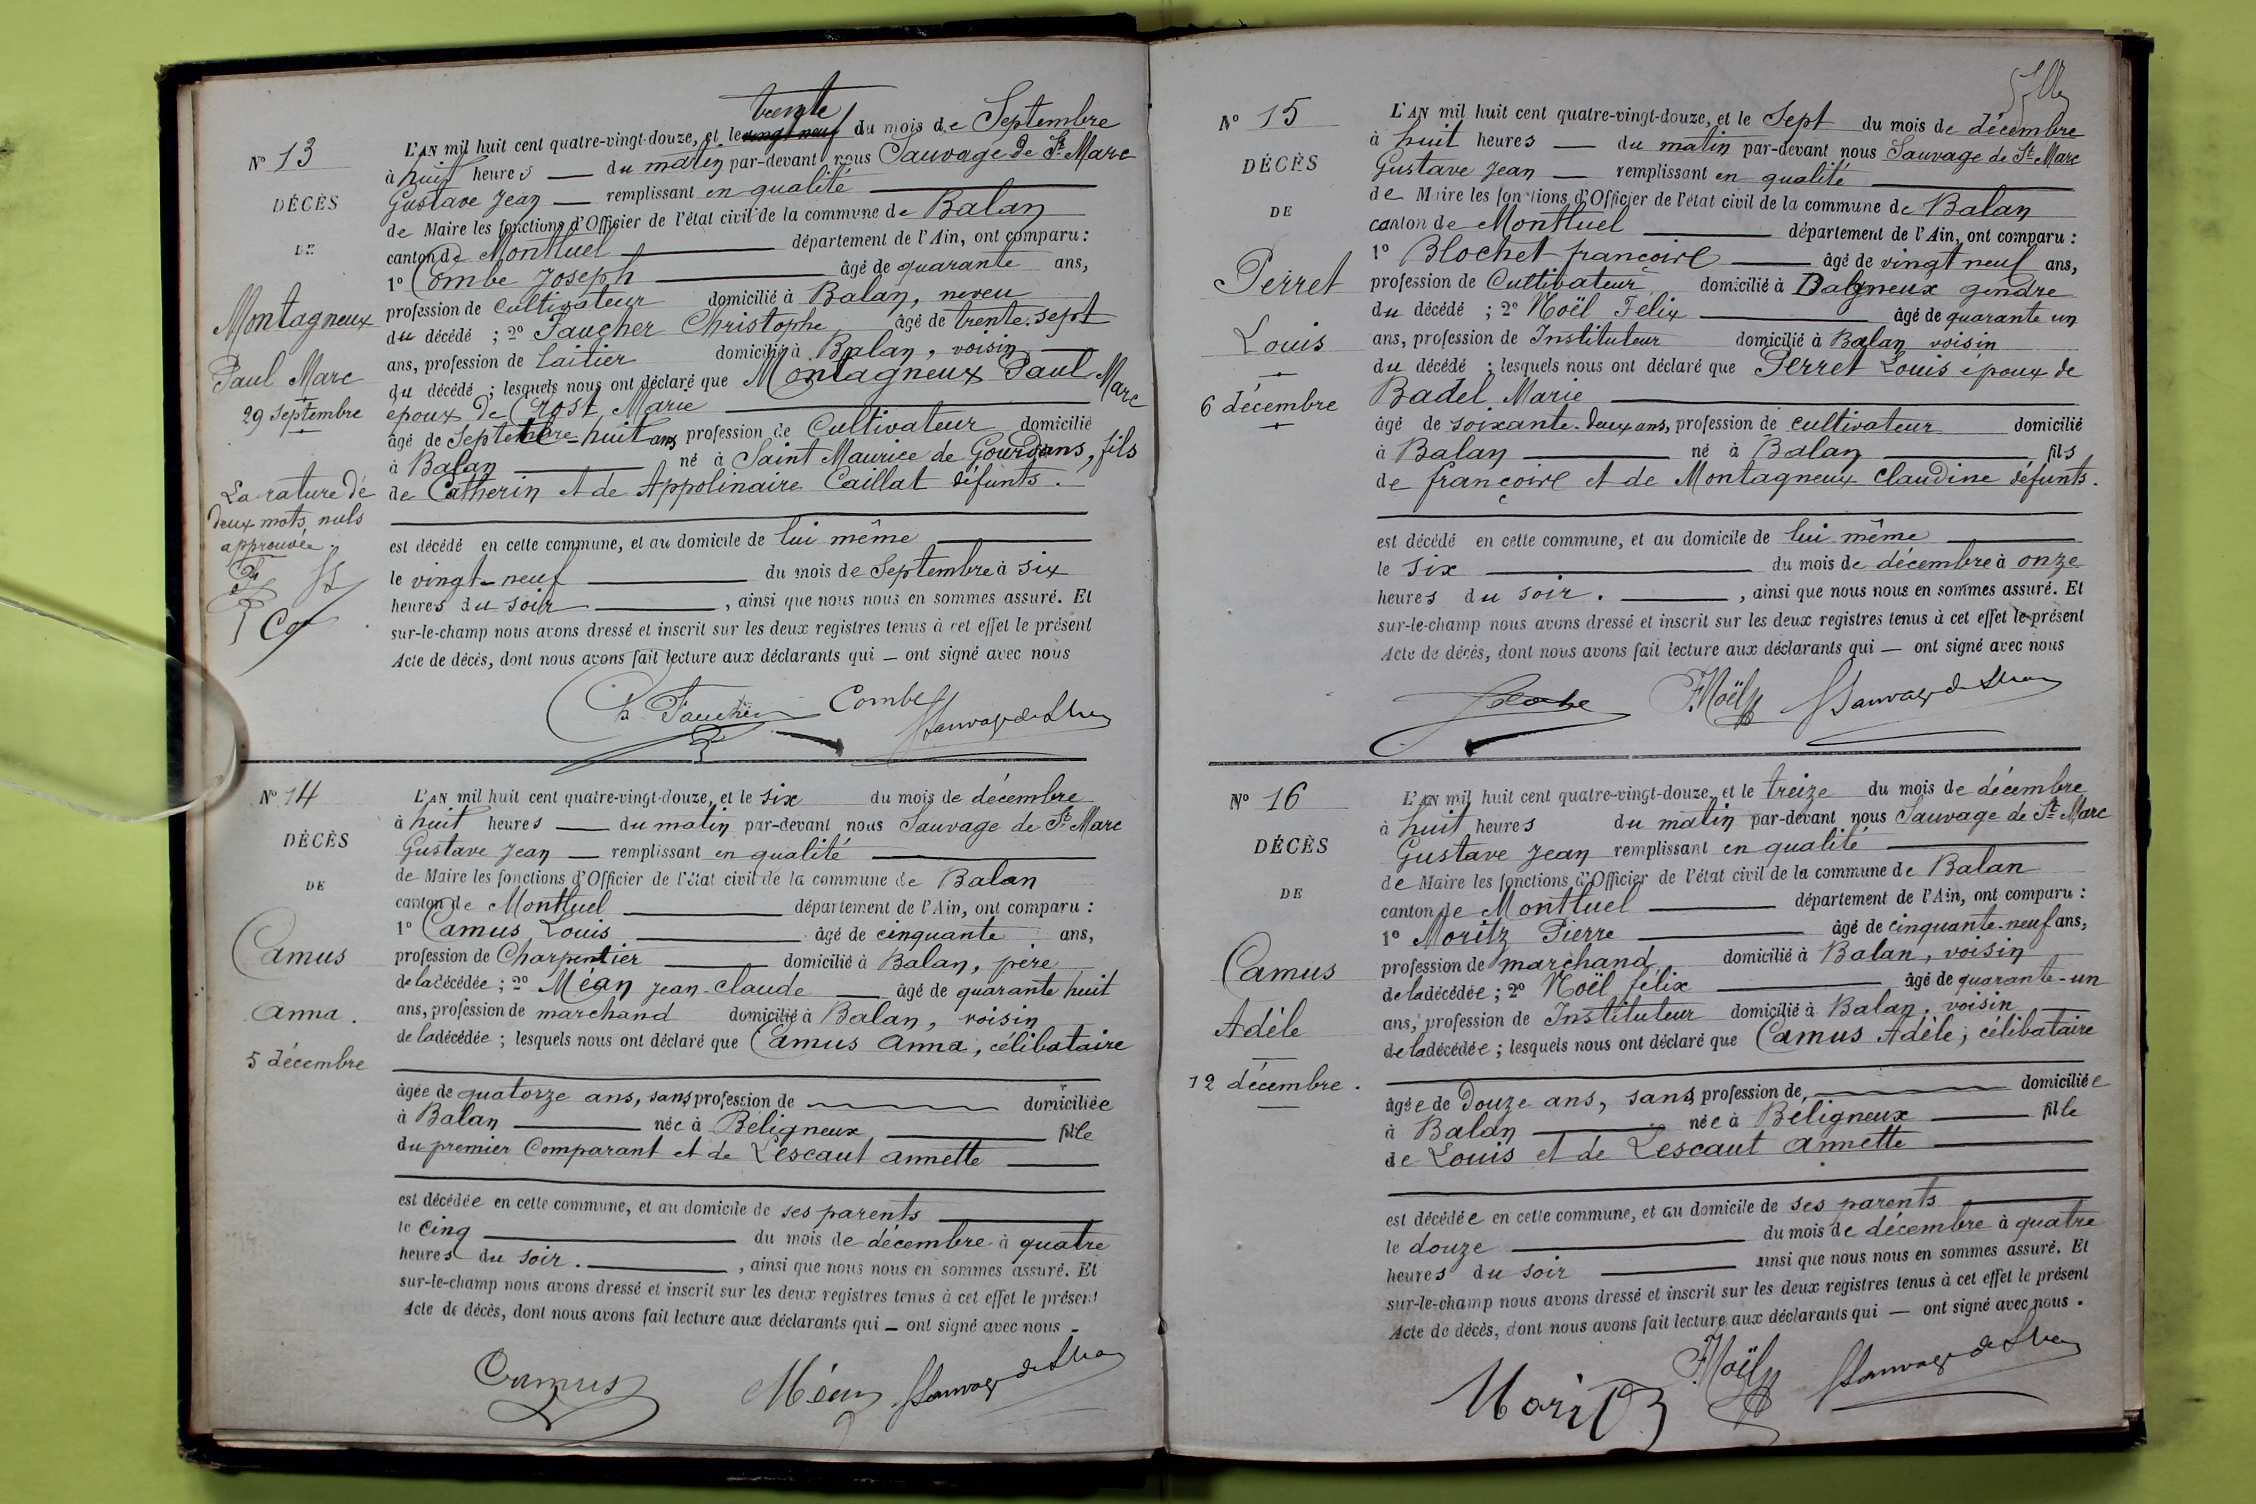 Nº 13
DÉCÈS
DE
Montagneux
Paul Marc
29 septembre
La rature de
deux mots nuls
approuvée.
trente
L'AN mil huit cent quatre-vingt-douze, et le vingt neuf du mois de Septembre
à huit heures du matin par-devant nous Sauvage de St Marc
Gustave Jean remplissant en qualité
de Maire les fonctions d'Officier de l'état civil de la commune de Balan
canton de Montluel département de l'Ain, ont comparu :
1º Combe Joseph âgé de quarante ans,
profession de Cultivateur domicilié à Balan, neveu
du décédé ; 2º Faucher Christophe âgé de trente-sept
ans, profession de laitier domicilié à Balan, voisin
du décédé ; lesquels nous ont déclaré que Montagneux Paul Marc
époux de Crost Marie
âgé de Septente-huit ans profession de Cultivateur domicilié
à Balan né à Saint Maurice de Gourdans, fils
de Catherin et de Appolinaire Caillat défunts.
est décédé en cette commune, et au domicile de lui même
le vingt-neuf du mois de Septembre à six
heures du soir, ainsi que nous nous en sommes assuré. Et
sur-le-champ nous avons dressé et inscrit sur les deux registres tenus à cet effet le présent
Acte de décès, dont nous avons fait lecture aux déclarants qui — ont signé avec nous
Faucher Combe Sauvage de St Marc
Nº 14
DÉCÈS
DE
Camus
Anna.
5 décembre
L'AN mil huit cent quatre-vingt-douze, et le six du mois de décembre
à huit heures du matin par-devant nous Sauvage de St Marc
Gustave Jean remplissant en qualité
de Maire les fonctions d'Officier de l'état civil de la commune de Balan
canton de Montluel département de l'Ain, ont comparu :
1º Camus Louis âgé de cinquante ans,
profession de Charpentier domicilié à Balan, père
de la décédée ; 2º Méan Jean-Claude âgé de quarante huit
ans, profession de marchand domicilié à Balan, voisin
de la décédée ; lesquels nous ont déclaré que Camus Anna, célibataire
âgée de quatorze ans, sans profession de domiciliée
à Balan née à Béligneux fille
du premier Comparant et de Lescaut Annette
est décédée en cette commune, et au domicile de ses parents
le cinq du mois de décembre à quatre
heures du soir. , ainsi que nous nous en sommes assuré. Et
sur-le-champ nous avons dressé et inscrit sur les deux registres tenus à cet effet le présent
Acte de décès, dont nous avons fait lecture aux déclarants qui — ont signé avec nous -
Camus Méan Sauvage de St Marc
Nº 15
DÉCÈS
DE
Perret
Louis
6 décembre
L'AN mil huit cent quatre-vingt-douze, et le Sept du mois de décembre
à huit heures du matin par-devant nous Sauvage de St Marc
Gustave Jean remplissant en qualité
de Maire les fonctions d'Officier de l'état civil de la commune de Balan
canton de Montluel département de l'Ain, ont comparu :
1º Blochet françois âgé de vingt neuf ans,
profession de Cultivateur domicilié à Dagneux gendre
du décédé ; 2º Noël Félix âgé de quarante un
ans, profession de Instituteur domicilié à Balan voisin
du décédé ; lesquels nous ont déclaré que Perret Louis époux de
Badel Marie
âgé de soixante-deux ans, profession de cultivateur domicilié
à Balan né à Balan fils
de françois et de Montagneux Claudine défunts.
est décédé en cette commune, et au domicile de lui même
le six du mois de décembre à onze
heures du soir. , ainsi que nous nous en sommes assuré. Et
sur-le-champ nous avons dressé et inscrit sur les deux registres tenus à cet effet le présent
Acte de décès, dont nous avons fait lecture aux déclarants qui — ont signé avec nous
F. Noël Sauvage de St Marc
Nº 16
DÉCÈS
DE
Camus
Adèle
12 décembre.
L'AN mil huit cent quatre-vingt-douze, et le treize du mois de décembre
à huit heures du matin par-devant nous Sauvage de St Marc
Gustave Jean remplissant en qualité
de Maire les fonctions d'Officier de l'état civil de la commune de Balan
canton de Montluel département de l'Ain, ont comparu :
1º Moritz Pierre âgé de cinquante-neuf ans,
profession de marchand domicilié à Balan, voisin
de la décédée ; 2º Noël félix âgé de quarante-un
ans, profession de Instituteur domicilié à Balan, voisin
de la décédée ; lesquels nous ont déclaré que Camus Adèle, célibataire
âgée de douze ans, sans profession de domiciliée
à Balan née à Béligneux fille
de Louis et de Lescaut Annette
est décédée en cette commune, et au domicile de ses parents
le douze du mois de décembre à quatre
heures du soir ainsi que nous nous en sommes assuré. Et
sur-le-champ nous avons dressé et inscrit sur les deux registres tenus à cet effet le présent
Acte de décès, dont nous avons fait lecture aux déclarants qui — ont signé avec nous.
Moritz F. Noël Sauvage de St Marc